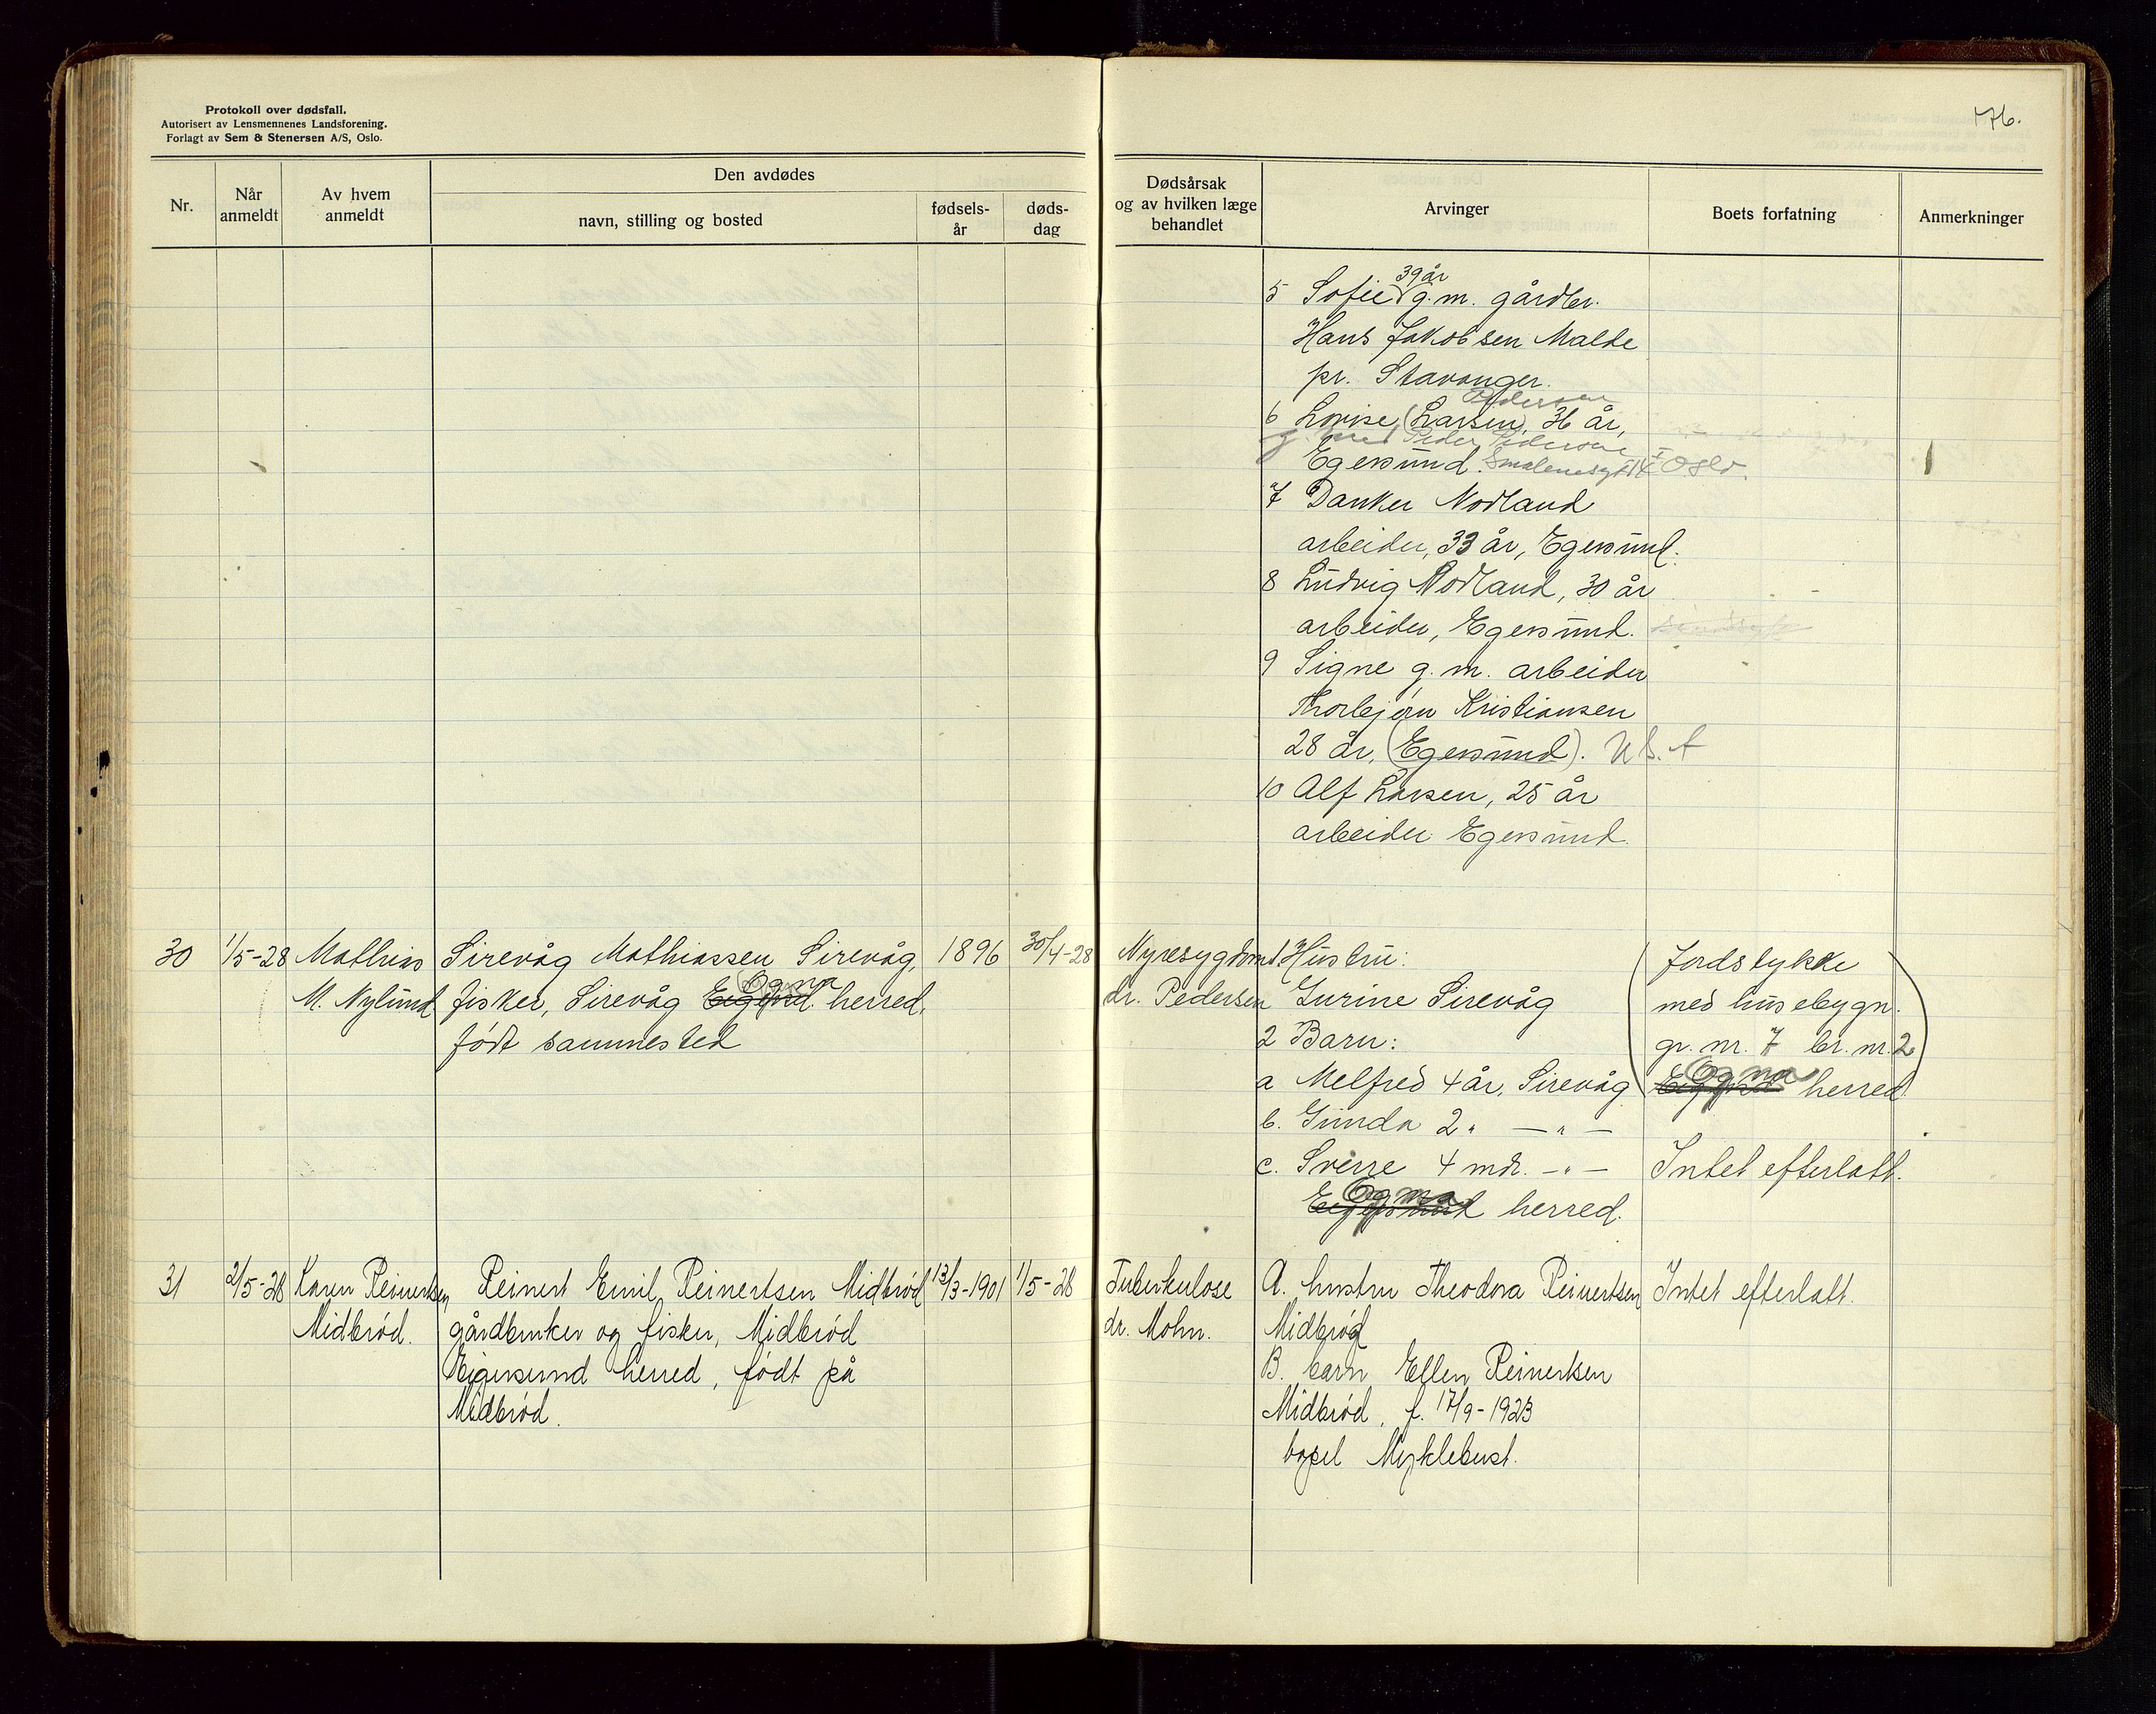 Protokoll over dødsfall.
Autorisert av Lensmennenes Landsforening.
Forlagt av Sem & Stenersen A/S, Oslo.
176.
Nr.
Når anmeldt
Av hvem anmeldt
Den avdødes
navn, stilling og bosted
fødsels-år
døds-dag
Dødsårsak og av hvilken læge behandlet
Arvinger
Boets forfatning
Anmerkninger
39 år
5 Sofie g.m. gårdbr.
Hans Jakobsen Malde
pr. Stavanger.
Pedersen
6 Lovise (Larsen), 36 år,
g. med Peder Pedersen
Egersund. Oslo.
7 Danker Nodland
arbeider, 33 år, Egersund.
8 Ludvig Nodland, 30 år
arbeider, Egersund.
9 Signe g.m. arbeider
Thorbjørn Kristiansen
28 år, (Egersund). U.S.A
10 Alf Larsen, 25 år
arbeider Egersund.
30
1/5-28
Mathias
M. Nylund
Sirevåg Mathiassen Sirevåg,
Ogna
fisker, Sirevåg Eigersund. herred,
født sammested
1896
30/4-28
Nyresygdom
dr. Pedersen
1 Hustru:
Gurine Sirevåg
2 Barn:
a Melfred 4 år, Sirevåg
b. Gunda 2 " — " —
c. Sverre 4 mdr. — " —
Ogna
Eigersund herred.
Jordstykke
med husebygn.
gr. nr. 7 br. nr. 2
Ogna
Eigersund herred.
Intet efterlatt.
31
2/5-28
Karen Reinertsen
Midbrød.
Reinert Emil Reinertsen Midbrød
gårdbruker og fisker, Midbrød
Eigersund herred, født på
Midbrød.
13/3-1901
1/5-28
Tuberkulose
dr. Mohn.
A. hustru Theodora Reinertsen
Midbrød
B. barn Ellen Reinertsen
Midbrød, f. 17/9-1923
bopel Myklebust.
Intet efterlatt.